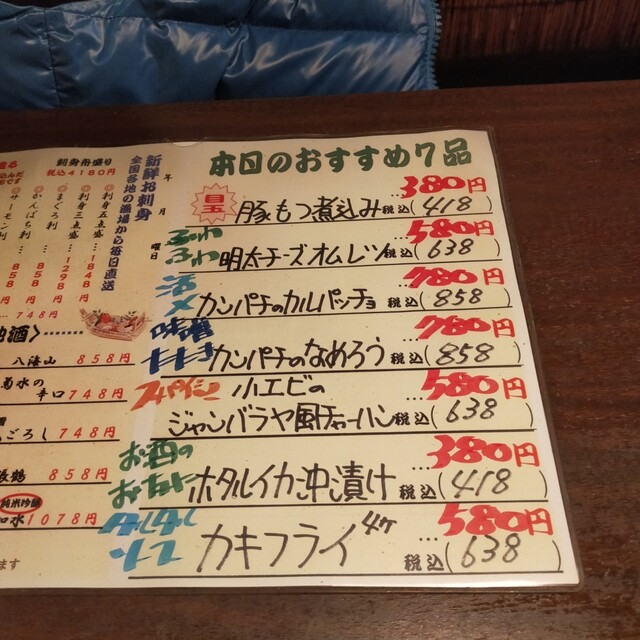 本日のおすすめ7品
目玉 豚もつ煮込み …380円 税込(418)
ふわふわ 明太チーズオムレツ …580円 税込(638)
活〆 カンパチのカルパッチョ …780円 税込(858)
味噌 カンパチのなめろう …780円 税込(858)
小エビの
ジャンバラヤ風チャーハン …580円 税込(638)
お酒の
おともに ホタルイカ沖漬け …380円 税込(418)
タルタル
ソース カキフライ 4ヶ …580円 税込(638)
新鮮お刺身
全国各地の漁場から毎日直送
年 月 曜日
刺身舟盛り
税込4180円
◎刺身五点盛…
◎刺身三点盛…
◎まぐろ刺
◎かんぱち刺
…748円
地酒〉……
八海山 858円
菊水の
辛口 748円
ごろし 748円
鶴 858円
純米吟醸
水 1078円
ます